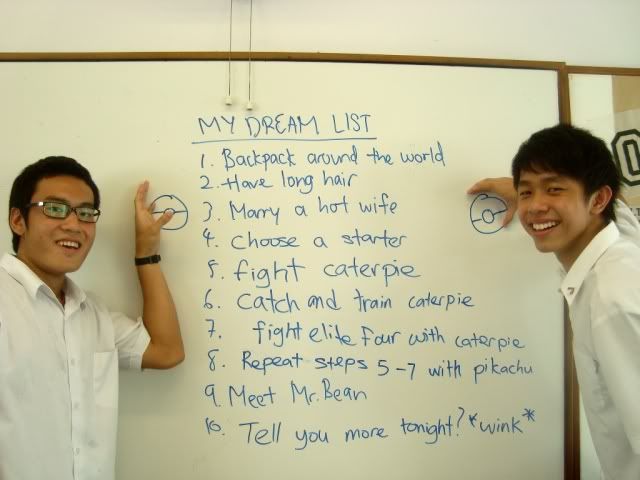 MY DREAM LIST
1. Backpack around the world
2. Have long hair
3. Marry a hot wife
4. Choose a starter
5. fight caterpie
6. catch and train caterpie
7. fight elite four with caterpie
8. Repeat steps 5-7 with pikachu
9. Meet Mr. Bean
10. Tell you more tonight? *wink*